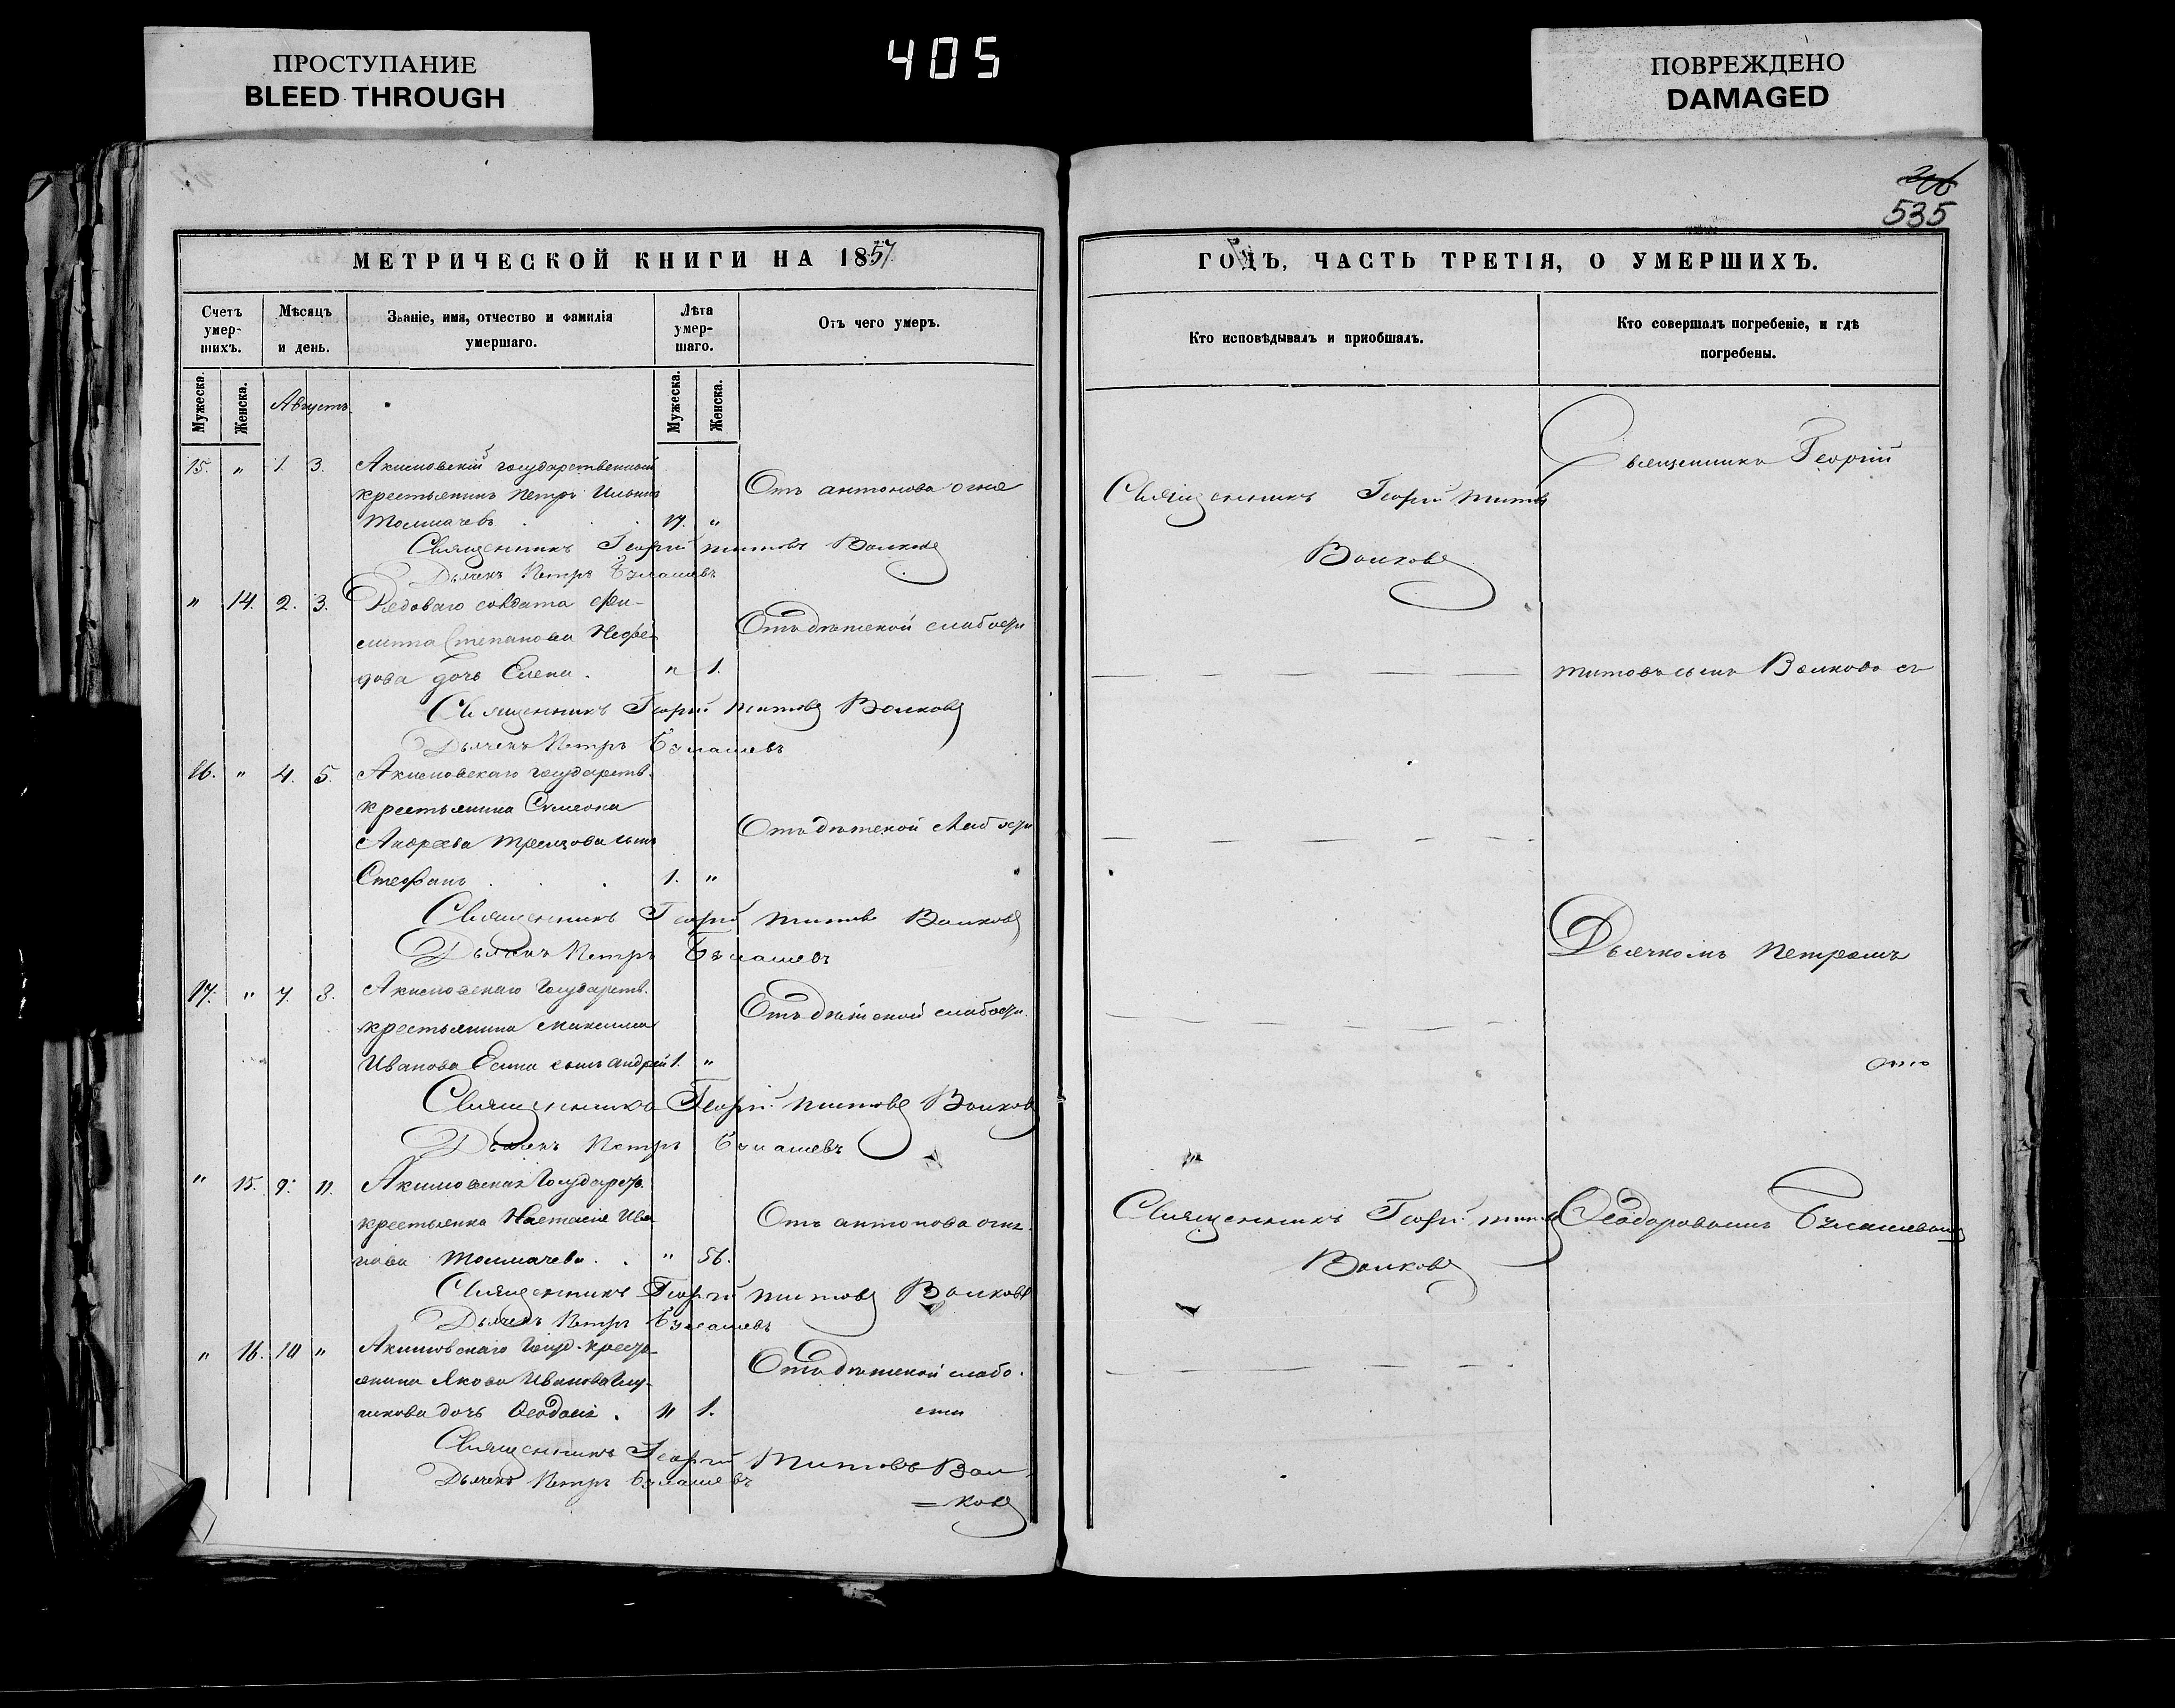 ПРОСТУПАНИЕ
BLEED THROUGH
405
ПОВРЕЖДЕНО
DAMAGED
206
535
МЕТРИЧЕСКОЙ КНИГИ НА 1857
Счетъ умер-шихъ.
Мѣсяцъ и день.
Званіе, имя, отчество и фамилія умершаго.
Лѣта умер-шаго.
Отъ чего умеръ.
Мужеска.
Женска.
Августъ.
Мужеска.
Женска.
15. " 1. 3. Акимовскій государственный
крестьянинъ Петръ Ильинъ
Толмачевъ 17. "
Отъ антонова огня
Священникъ Георгій Титовъ Волковъ
Дьячекъ Петръ
" 14. 2. 3. Рядоваго солдата Фи-
липпа Степанова Нефе-
дова дочь Елена. " 1.
Отъ дѣтской слабости
Священникъ Георгій Титовъ Волковъ
Дьячекъ Петръ
16. " 4. 5. Акимовскаго государств.
крестьянина Симеона
Андреева сынъ
Стефанъ 1. "
Отъ дѣтской слабости
Священникъ Георгій Титовъ Волковъ
Дьячекъ Петръ
17. " 7. 8. Акимовскаго государств.
крестьянина Максима
Иванова Есина сынъ Андрей 1. "
Отъ дѣтской слабости.
Священникъ Георгій Титовъ Волковъ
Дьячекъ Петръ
" 15. 9. 11. Акимовская государств.
крестьянка Настасія Ива-
нова Толмачева. " 56.
Отъ антонова огня.
Священникъ Георгій Титовъ Волковъ
Дьячекъ Петръ
" 16. 10 " Акимовскаго госуд. кресть-
янина Якова Иванова
дочь Ѳеодосія. " 1.
Отъ дѣтской слабо-
сти
Священникъ Георгій Титовъ Вол-
Дьячекъ Петръ
=ковъ
ГОДЪ, ЧАСТЬ ТРЕТІЯ, О УМЕРШИХЪ.
Кто исповѣдывалъ и пріобщалъ.
Кто совершалъ погребеніе, и гдѣ
погребены.
Священникъ Георгій Титовъ
Волковъ
Священникъ Георгій
Титовъ сынъ Волковъ съ
Дьячкомъ Петромъ
Священникъ Георгій Титовъ
Волковъ
Ѳеодоровымъ